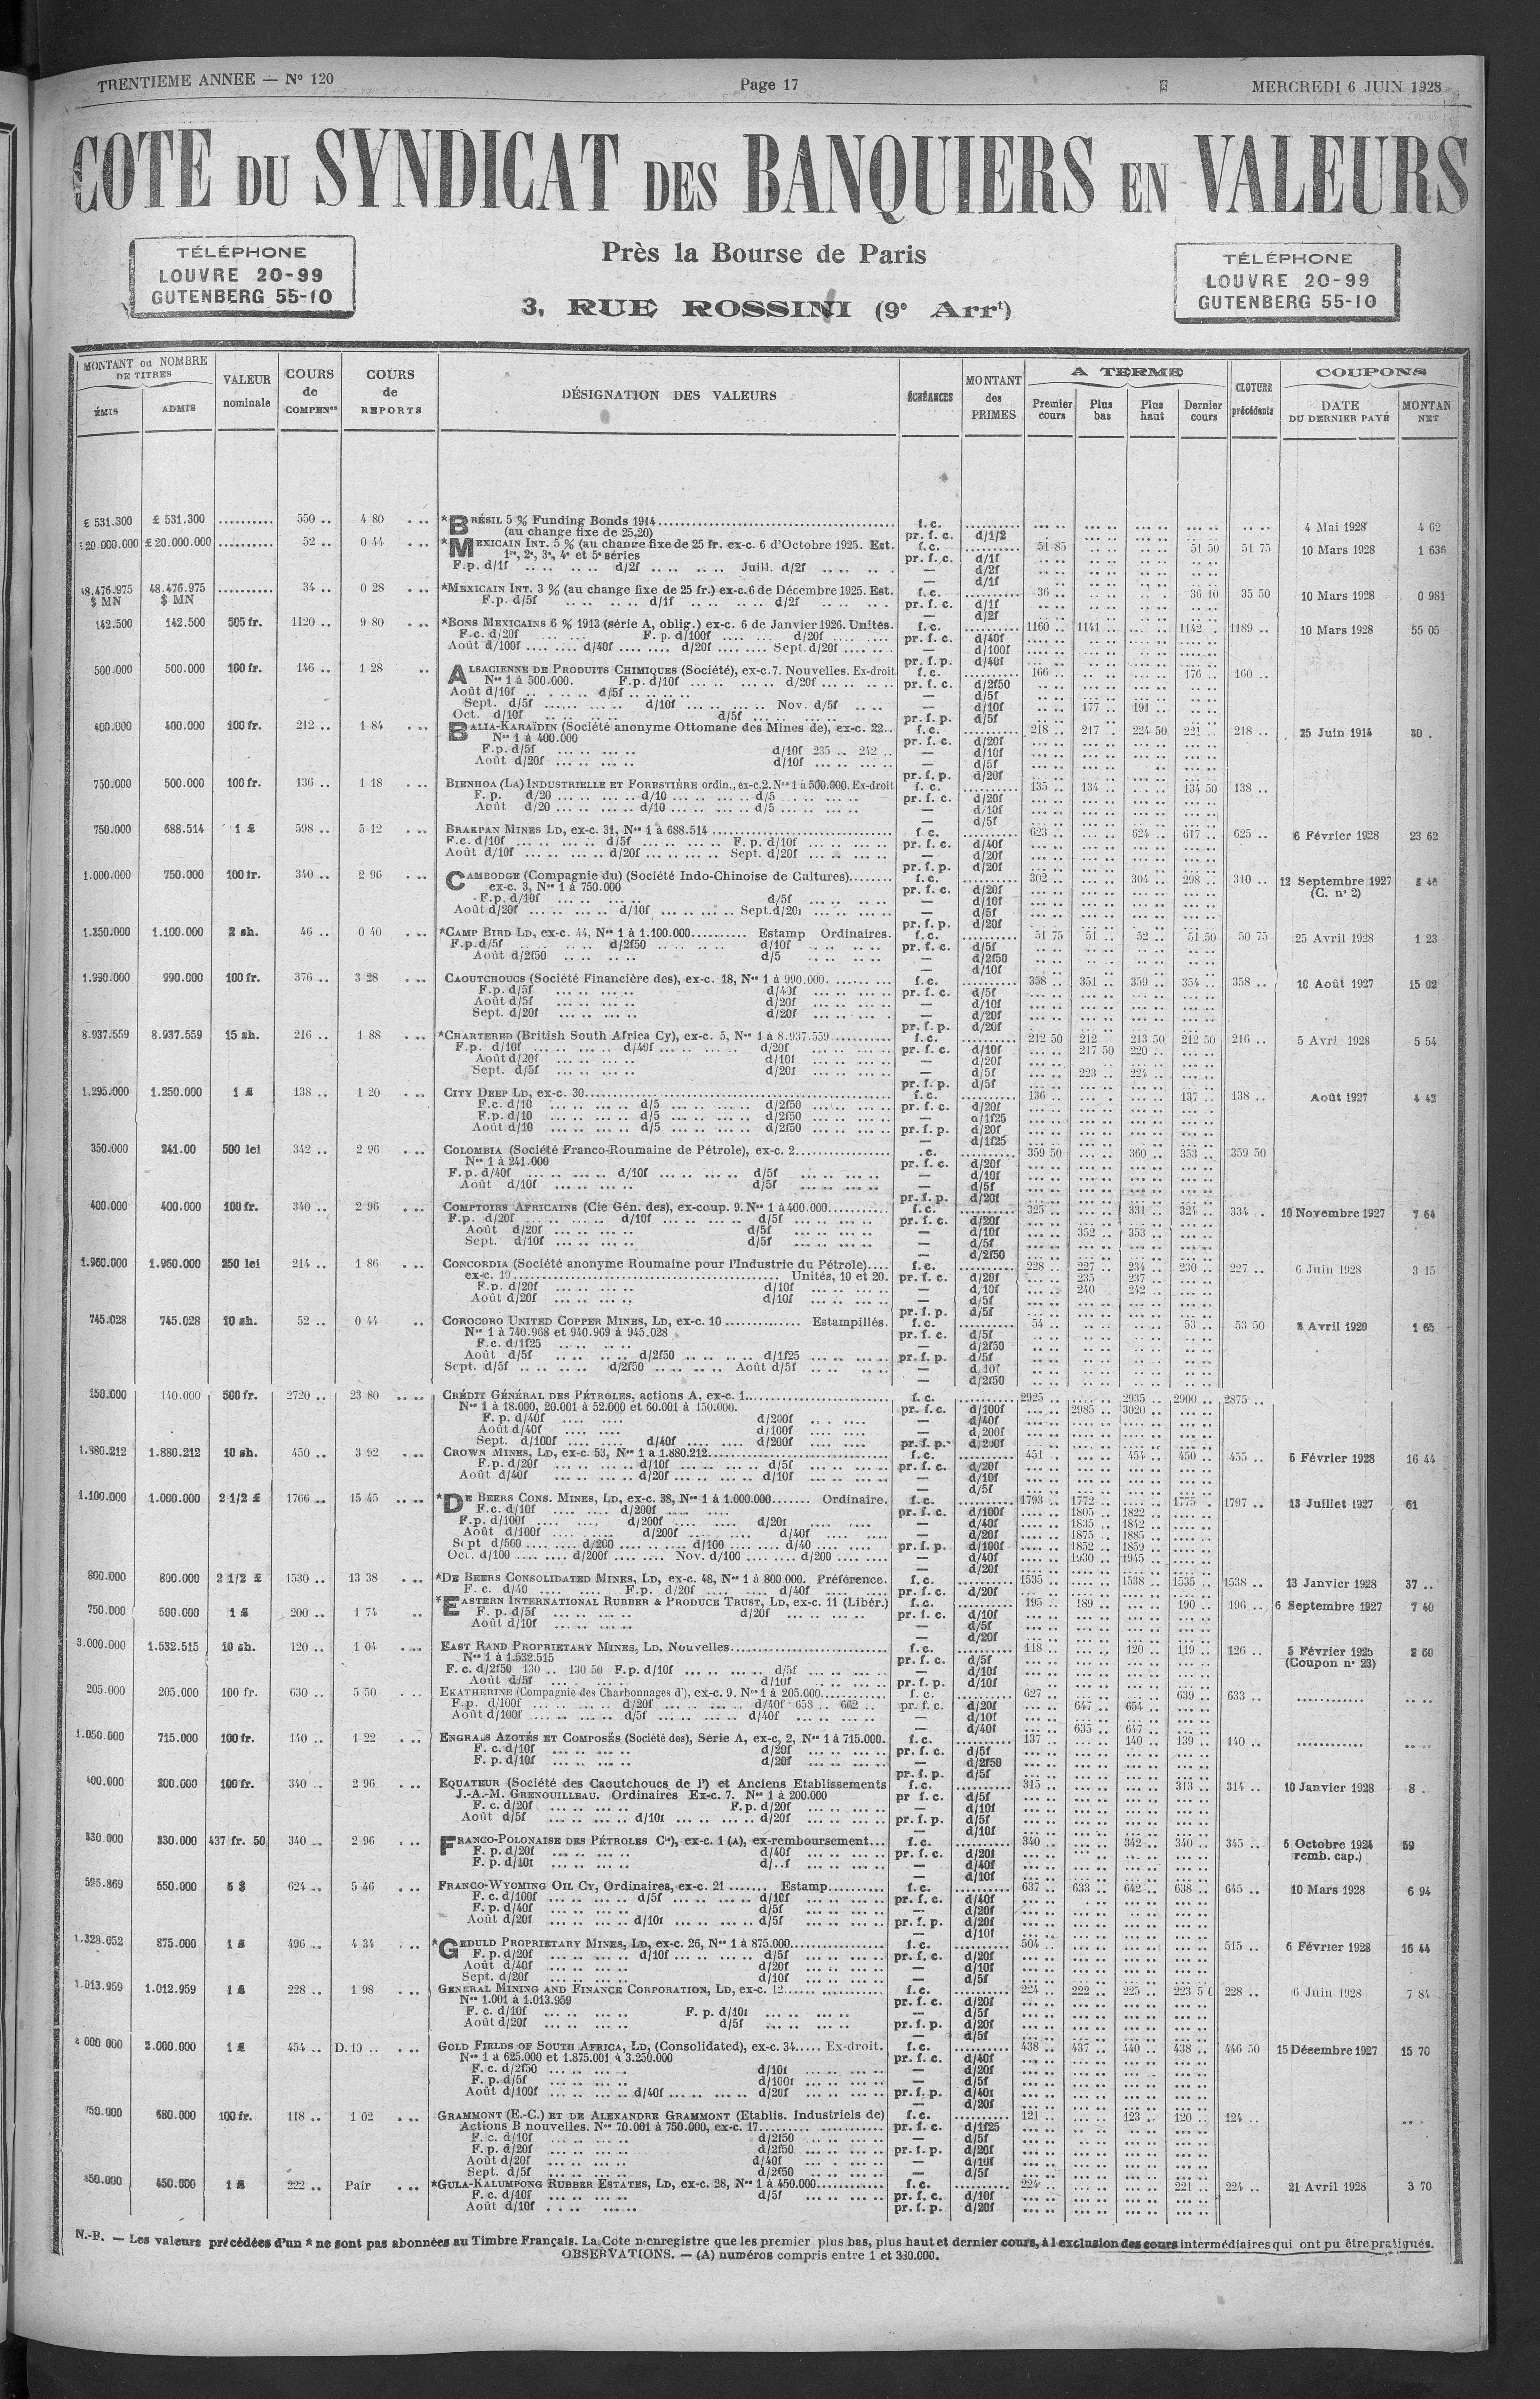 TRENTIEME ANNEE — N° 120
Page 17
MERCREDI 6 JUIN 1928
COTE DU SYNDICAT DES BANQUIERS EN VALEURS
TÉLÉPHONE
LOUVRE 20-99
GUTENBERG 55-10
Près la Bourse de Paris
3, RUE ROSSINI (9e Arrt)
TÉLÉPHONE
LOUVRE 20-99
GUTENBERG 55-10
MONTANT ou NOMBRE DE TITRES
ÉMIS ADMIS
VALEUR nominale
COURS de COMPENon
COURS de REPORTS
DÉSIGNATION DES VALEURS
ÉCHÉANCES
MONTANT des PRIMES
A TERME
Premier cours Plus bas Plus haut Dernier cours
CLOTURE précédente
COUPONS
DATE DU DERNIER PAYÉ MONTAN NET
£ 531.300 £ 531.300 .......... 550 .. 4 80 *BRÉSIL 5 % Funding Bonds 1914 f.c. 4 Mai 1928 4 62
(au change fixe de 25,20) pr. f. c. d/1/2
20.000.000 £ 20.000.000 .......... 52 .. 0 44 *MEXICAIN INT. 5 % (au change fixe de 25 fr. ex-c. 6 d'Octobre 1925. Est. f.c. 51 85 51 50 51 75 10 Mars 1928 1 636
1re, 2e, 3e, 4e et 5e séries pr. f. c. d/1f
F.p. d/1f .. .. .. .. d/2f .. .. .. .. Juill. d/2f — d/2f
— d/1f
48.476.975 $ MN 48.476.975 $ MN .......... 34 .. 0 28 *MEXICAIN INT. 3 % (au change fixe de 25 fr.) ex-c. 6 de Décembre 1925. Est. f.c. 36 .. 36 10 35 50 10 Mars 1928 0 981
F.p. d/5f .. .. .. .. d/1f .. .. .. .. d/2f pr. f. c. d/1f
— d/2f
142.500 142.500 505 fr. 1120 .. 9 80 *BONS MEXICAINS 6 % 1913 (série A, oblig.) ex-c. 6 de Janvier 1926. Unités. f.c. 1160 .. 1141 .. 1142 . 1189 .. 10 Mars 1928 55 05
F.c. d/20f F. p. d/100f d/20f pr. f. c. d/40f
Août d/100f d/40f d/20f Sept. d/20f — d/100f
pr. f. p. d/40f
500.000 500.000 100 fr. 146 .. 1 28 ALSACIENNE DE PRODUITS CHIMIQUES (Société), ex-c. 7. Nouvelles. Ex-droit f.c. 166 .. 176 .. 160 ..
Nos 1 à 500.000. F.p. d/10f d/20f pr. f. c. d/2f50
Août d/10f d/5f — d/5f
Sept. d/5f d/10f Nov. d/5f — d/10f 177 .. 191 ..
Oct. d/10f d/5f pr. f. p. d/5f
400.000 400.000 100 fr. 212 .. 1 84 BALIA-KARAÏDIN (Société anonyme Ottomane des Mines de), ex-c. 22.. f.c. 218 .. 217 .. 224 50 221 .. 218 .. 25 Juin 1914 30 .
Nos 1 à 400.000 pr. f. c. d/20f
F.p. d/5f d/10f 235 .. 242 .. — d/10f
Août d/20f d/10f — d/5f
pr. f. p. d/20f
750.000 500.000 100 fr. 136 .. 1 18 BIENHOA (LA) INDUSTRIELLE ET FORESTIÈRE ordin., ex-c. 2. Nos 1 à 500.000. Ex-droit f. c. 135 .. 134 .. 134 50 138 ..
F. p. d/20 d/10 d/5 pr. f. c. d/20f
Août d/20 d/10 d/5 — d/10f
— d/5f
750.000 688.514 1 £ 598 .. 5 12 BRAKPAN MINES LD, ex-c. 31, Nos 1 à 688.514 f.c. 623 .. 624 .. 617 .. 625 .. 6 Février 1928 23 62
F.c. d/10f d/5f F. p. d/10f pr. f. c. d/40f
Août d/10f d/20f Sept. d/20f — d/20f
pr. f. p. d/20f
1.000.000 750.000 100 fr. 340 .. 2 96 CAMBODGE (Compagnie du) (Société Indo-Chinoise de Cultures) f.c. 302 .. 304 .. 298 .. 310 .. 12 Septembre 1927
ex-c. 3, Nos 1 à 750.000 pr. f. c. d/20f (C. n° 2)
F.p. d/10f d/5f — d/10f
Août d/20f d/10f Sept. d/20f — d/5f
pr. f. p. d/20f
1.350.000 1.100.000 2 sh. 46 .. 0 40 *CAMP BIRD LD, ex-c. 44, Nos 1 à 1.100.000 Estamp Ordinaires. f.c. 51 75 51 .. 52 .. 51 50 50 75 25 Avril 1928 1 23
F.p. d/5f d/2f50 d/10f pr. f. c. d/5f
Août d/2f50 d/5 — d/2f50
— d/10f
1.990.000 990.000 100 fr. 376 .. 3 28 CAOUTCHOUCS (Société Financière des), ex-c. 18, Nos 1 à 990.000. f.c. 358 .. 351 .. 359 .. 354 .. 358 .. 10 Août 1927 15 02
F.p. d/5f d/40f pr. f. c. d/5f
Août d/5f d/20f — d/10f
Sept. d/20f d/20f — d/20f
pr. f. p. d/20f
8.937.559 8.937.559 15 sh. 216 .. 1 88 *CHARTERED (British South Africa Cy), ex-c. 5, Nos 1 à 8.937.559 f.c. 212 50 212 213 50 212 50 216 .. 5 Avri 1928 5 54
F.p. d/10f d/40f d/20f pr. f. c. d/10f 217 50 220 ..
Août d/20f d/10f — d/20f
Sept. d/5f d/20f — d/5f 223 .. 224 ..
pr. f. p. d/5f
1.295.000 1.250.000 1 £ 138 .. 1 20 CITY DEEP LD, ex-c. 30 f.c. 136 .. 137 .. 138 .. Août 1927 4 42
F.c. d/10 d/5 d/2f50 pr. f. c. d/20f
F.p. d/10 d/5 d/2f50 — d/1f25
Août d/10 d/5 d/2f50 pr. f. p. d/20f
— d/1f25
350.000 241.00 500 lei 342 .. 2 96 COLOMBIA (Société Franco-Roumaine de Pétrole), ex-c. 2 .c. 359 50 360 .. 353 .. 359 50
Nos 1 à 241.000 pr. f. c. d/20f
F.p. d/40f d/10f d/5f — d/10f
Août d/10f d/5f — d/5f
pr. f. p. d/20f
400.000 400.000 100 fr. 340 .. 2 96 COMPTOIRS AFRICAINS (Cie Gén. des), ex-coup. 9. Nos 1 à 400.000 f.c. 325 .. 331 .. 324 .. 334 . 10 Novembre 1927 7 64
F.p. d/20f d/10f d/5f pr. f. c. d/20f
Août d/20f d/5f — d/10f 352 .. 353 ..
Sept. d/10f d/5f — d/5f
— d/2f50
1.960.000 1.960.000 250 lei 214 .. 1 86 CONCORDIA (Société anonyme Roumaine pour l'Industrie du Pétrole) f.c. 228 .. 227 .. 234 .. 230 .. 227 .. 6 Juin 1928 3 15
ex-c. 19 Unités, 10 et 20. pr. f. c. d/20f 235 237 ..
F.p. d/20f d/10f — d/10f 240 242 ..
Août d/20f d/10f — d/5f
pr. f. p. d/5f
745.028 745.028 10 sh. 52 .. 0 44 COROCORO UNITED COPPER MINES, LD, ex-c. 10 Estampillés. f.c. 54 .. 53 .. 53 50 Avril 1920 1 65
Nos 1 à 740.968 et 940.969 à 945.028 pr. f. c. d/5f
F.c. d/1f25 — d/2f50
Août d/5f d/2f50 d/1f25 pr. f. p. d/5f
Sept. d/5f d/2f50 Août d/5f — d/10f
— d/2f50
150.000 140.000 500 fr. 2720 .. 23 80 CRÉDIT GÉNÉRAL DES PÉTROLES, actions A, ex-c. 1 f. c. 2925 .. 2935 .. 2900 .. 2875 ..
Nos 1 à 18.000, 20.001 à 52.000 et 60.001 à 150.000. pr. f. c. d/100f 2985 .. 3020 ..
F. p. d/40f d/200f — d/40f
Août d/40f d/100f — d/200f
Sept. d/100f d/40f d/200f pr. f. p. d/200f
1.880.212 1.880.212 10 sh. 450 .. 3 92 CROWN MINES, LD, ex-c. 53, Nos 1 a 1.880.212 f.c. 451 . 454 .. 450 .. 455 .. 6 Février 1928 16 44
F.p. d/20f d/10f d/5f pr. f. c. d/20f
Août d/40f d/20f d/10f — d/10f
— d/5f
1.100.000 1.000.000 2 1/2 £ 1766 .. 15 45 *DE BEERS CONS. MINES, LD, ex-c. 38, Nos 1 à 1.000.000 Ordinaire. f.c. 1793 .. 1772 .. 1775 .. 1797 .. 13 Juillet 1927 61
F.c. d/10f d/200f pr. f. c. d/100f 1805 .. 1822 ..
F.p. d/100f d/200f d/20f — d/40f 1835 .. 1842 ..
Août d/100f d/200f d/40f — d/20f 1875 .. 1885 ..
Sept d/500 d/200 d/100 d/40 pr. f. p. d/100f 1852 .. 1859 ..
Oct. d/100 d/200f Nov. d/100 d/200 — d/40f 1930 .. 1945 ..
— d/20f
800.000 800.000 2 1/2 £ 1530 .. 13 38 *DE BEERS CONSOLIDATED MINES, LD, ex-c. 48, Nos 1 à 800 000. Préférence. f.c. 1535 .. 1538 .. 1535 .. 1538 .. 13 Janvier 1928 37 ..
F. c. d/40 F.p. d/20f d/40f pr. f. c. d/20f
750.000 500.000 1 £ 200 .. 1 74 *EASTERN INTERNATIONAL RUBBER & PRODUCE TRUST, LD, ex-c. 11 (Libér.) f.c. 195 .. 189 .. 190 .. 196 .. 6 Septembre 1927 7 40
F. p. d/5f d/20f pr. f. c. d/10f
Août d/10f — d/5f
— d/20f
3.000.000 1.532.515 10 sh. 120 .. 1 04 EAST RAND PROPRIETARY MINES, LD. Nouvelles f.c. 118 .. 120 .. 119 .. 126 .. 5 Février 1925 2 60
Nos 1 à 1.532.515 pr. f. c. d/5f (Coupon n° 23)
F. c. d/2f50 130 .. 130 50 F.p. d/10f d/5f — d/10f
Août d/5f d/10f pr. f. p. d/10f
205.000 205.000 100 fr. 630 .. 5 50 EKATHERINE (Compagnie des Charbonnages d'), ex-c. 9. Nos 1 à 205.000 f. c. 627 .. 639 .. 633 ..
F.p. d/100f d/20f d/40f 653 .. 662 .. pr. f. c. d/20f 647 .. 654 ..
Août d/100f d/5f d/40f — d/10f
— d/40f 635 .. 647 ..
1.050.000 715.000 100 fr. 140 .. 1 22 ENGRAIS AZOTÉS ET COMPOSÉS (Société des), Série A, ex-c, 2, Nos 1 à 715.000. f.c. 137 .. 140 .. 139 .. 140 ..
F. c. d/10f d/20f pr. f. c. d/5f
F. p. d/10f d/20f — d/2f50
pr. f. p. d/5f
400.000 200.000 100 fr. 340 .. 2 96 EQUATEUR (Société des Caoutchoucs de l') et Anciens Etablissements f.c. 315 .. 313 .. 314 .. 10 Janvier 1928 8 ..
J.-A.-M. GRENOUILLEAU. Ordinaires Ex-c. 7. Nos 1 à 200.000 pr f. c. d/5f
F. c. d/20f F.p. d/20f — d/10f
Août d/5f d/10f d/20f pr. f. p. d/5f
— d/10f
330.000 330.000 437 fr. 50 340 .. 2 96 FRANCO-POLONAISE DES PÉTROLES Cie), ex-c. 1 (A), ex-remboursement... f.c. 340 .. 342 .. 340 .. 345 .. 6 Octobre 1924 59
F. p. d/20f d/40f pr. f. c. d/20f remb. cap.)
F. p. d/10f d/..f — d/40f
— d/10f
596.869 550.000 5 $ 624 .. 5 46 FRANCO-WYOMING OIL CY, Ordinaires, ex-c. 21 Estamp f.c. 637 .. 633 .. 642 .. 638 .. 645 .. 10 Mars 1928 6 94
F. c. d/100f d/5f d/10f pr. f. c. d/40f
F. p. d/40f d/5f — d/20f
Août d/20f d/10f d/5f pr. f. p. d/20f
— d/10f
1.328.052 875.000 1 £ 496 .. 4 34 *GEDULD PROPRIETARY MINES, LD, ex-c. 26, Nos 1 à 875.000 f.c. 504 .. 515 .. 6 Février 1928 16 44
F. p. d/20f d/10f d/5f pr. f. c. d/20f
Août d/40f d/20f — d/10f
Sept. d/20f d/10f — d/5f
1.013.959 1.012.959 1 £ 228 .. 1 98 GENERAL MINING AND FINANCE CORPORATION, LD, ex-c. 12 f.c. 224 .. 222 .. 225 .. 223 5 228 .. 6 Juin 1928 7 84
Nos 1.001 à 1.013.959 pr. f. c. d/20f
F. c. d/10f F. p. d/10f — d/5f
Août d/20f d/5f pr. f. p. d/20f
— d/5f
000 000 2.000.000 1 £ 454 .. D. 10 .. GOLD FIELDS OF SOUTH AFRICA, LD, (Consolidated), ex-c. 34 Ex-droit. f.c. 438 .. 437 .. 440 .. 438 .. 446 50 15 Décembre 1927 15 70
Nos 1 à 625.000 et 1.875.001 à 3.250.000 pr. f. c. d/40f
F. c. d/2f50 d/10f — d/20f
F. p. d/5f d/100f — d/5f
Août d/100f d/40f d/20f pr. f. p. d/40f
— d/20f
750.000 680.000 100 fr. 118 .. 1 02 GRAMMONT (E.-C.) ET DE ALEXANDRE GRAMMONT (Etablis. Industriels de) f.c. 121 .. 123 .. 120 .. 124 ..
Actions B nouvelles. Nos 70.001 à 750.000, ex-c. 17 pr. f. c. d/1f25
F. c. d/10f d/2f50 — d/5f
F. p. d/20f d/2f50 pr. f. p. d/20f
Août d/20f d/40f — d/10f
Sept. d/5f d/2f50 — d/5f
450.000 450.000 1 £ 222 .. Pair *GULA-KALUMPONG RUBBER ESTATES, LD, ex-c. 28, Nos 1 à 450.000 f.c. 224 .. 221 .. 224 .. 21 Avril 1928 3 70
F. c. d/10f d/5f pr. f. c. d/10f
Août d/10f pr. f. p. d/20f
N.-B. — Les valeurs précédées d'un * ne sont pas abonnées au Timbre Français. La Cote n'enregistre que les premier plus bas, plus haut et dernier cours, à l exclusion des cours intermédiaires qui ont pu être pratiqués.
OBSERVATIONS. — (A) numéros compris entre 1 et 330.000.